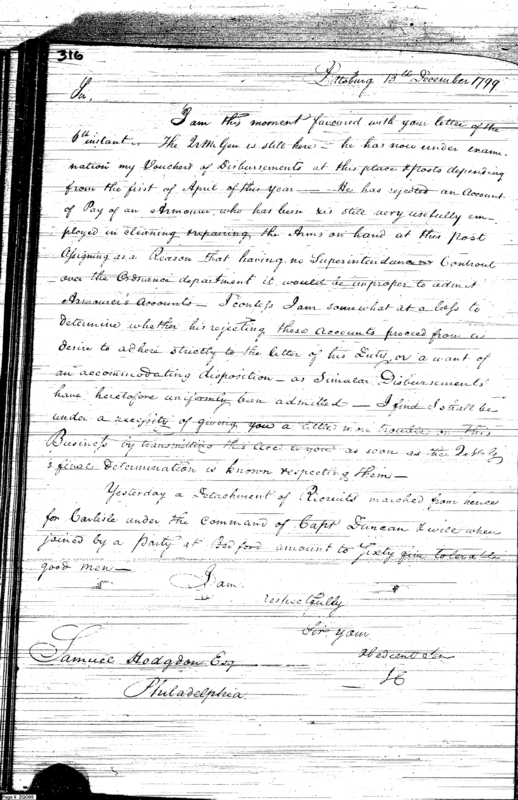 316
Pittsburg 13th December 1799
Sir,
I am this moment favoured with your letter of the
6th instant. The Qr Mr Gen is still here – he has now under exami-
nation my Vouchers of Disbursements at this place & posts depending
from the first of April of this year — He has rejected an Account
of Pay of an Armourer who has been & is still very usefully em-
ployed in cleaning & repairing the Arms on hand at this post
Assigning as a Reason that having no Superintendance or Controul
over the Ordnance department it would be improper to admit
Armourer's Accounts – I confess I am somewhat at a loss to
determine whether his rejecting these accounts proceed from a
desire to adhere strictly to the letter of his Duty, or a want of
an accommodating disposition – as Simular Disbursements
have heretofore uniformly been admitted – I find I shall be
under a necessity of giving you a little more trouble in this
Business by transmitting this Acc to you as soon as the
final Determination is known respecting them –
Yesterday a Detachment of Recruits marched from hence
for Carlisle under the Command of Capt Duncan & will when
joined by a Party at Bedford amount to Sixty five tolerable
good men –
I am
respectfully
Sir your
obedient Ser
Samuel Hodgdon Esq
Philadelphia
Page 6 ZQO05